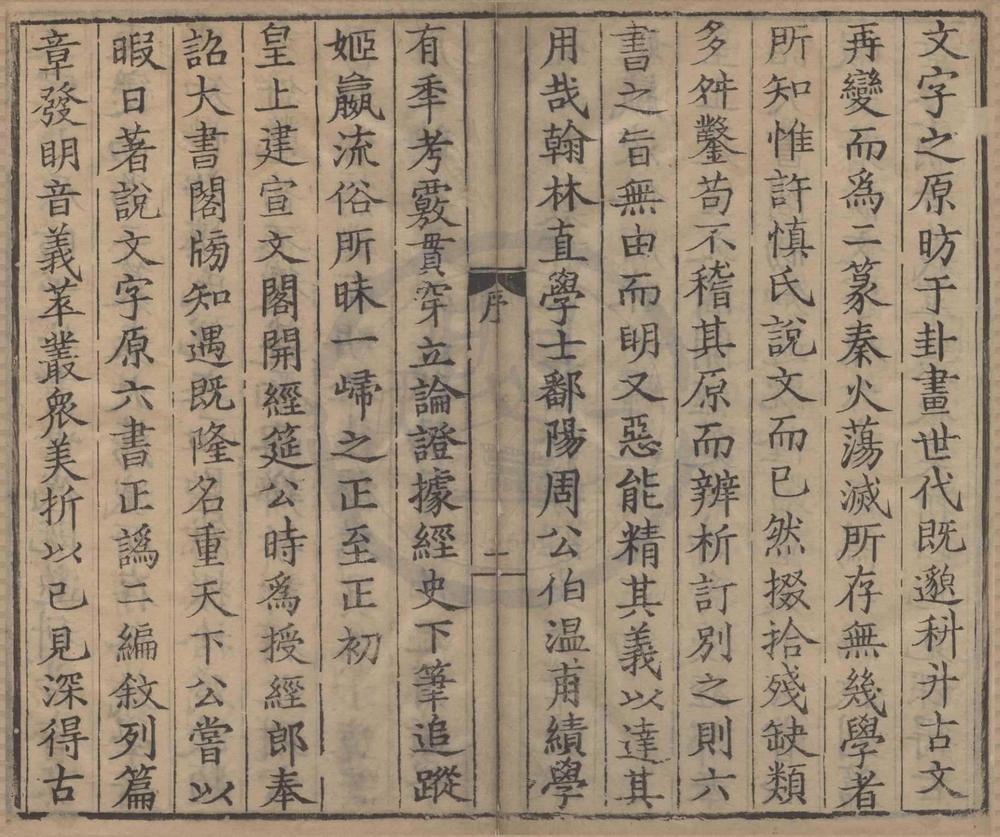 文字之原昉于卦畫世代既邈科斗古文
再變而爲二篆秦火蕩滅所存無幾學者
所知惟許慎氏說文而已然掇拾殘缺類
多舛鑿苟不稽其原而辨析訂別之則六
書之旨無由而明又惡能精其義以達其
用哉翰林直學士鄱陽周公伯溫甫績學
序
一
有年考覈貫穿立論證據經史下筆追蹤
姬嬴流俗所昧一歸之正至正初
皇上建宣文閣開經筵公時爲授經郎奉
詔大書閣牓知遇既隆名重天下公嘗以
暇日著說文字原六書正譌二編敘列篇
章發明音義萃叢衆美折以己見深得古